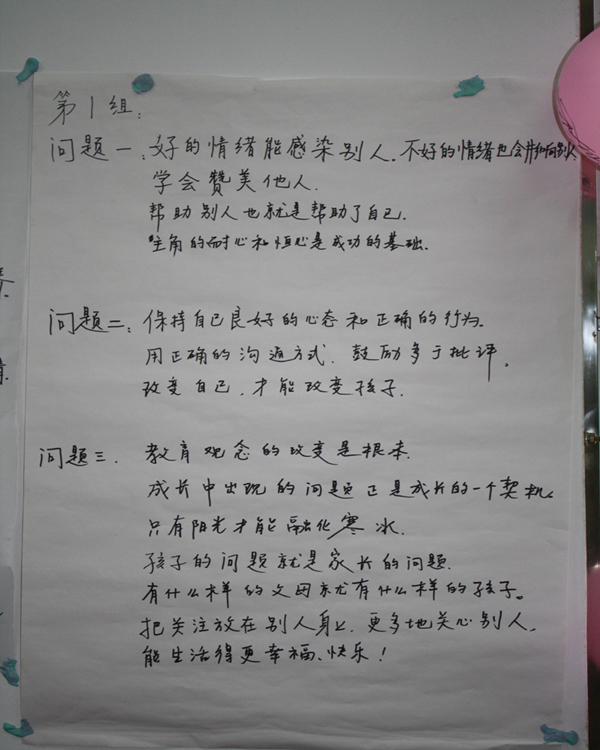 第1组:
问题一:好的情绪能感染别人.不好的情绪也会影响别人
学会赞美他人.
帮助别人也就是帮助了自己.
主角的耐心和恒心是成功的基础.
问题二:保持自己良好的心态和正确的行为.
用正确的沟通方式.鼓励多于批评。
改变自己.才能改变孩子.
问题三.教育观念的改变是根本.
成长中出现的问题正是成长的一个契机.
只有阳光才能融化寒冰.
孩子的问题就是家长的问题.
有什么样的父母就有什么样的孩子。
把关注放在别人身上.更多地关心别人.
能生活得更幸福、快乐!